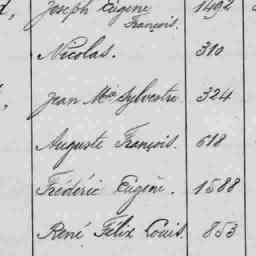 Joseph Eugène 1492
François.
Nicolas. 310
Jean Mie Sylvestre 324
Auguste François. 618
Frédéric Eugène. 1588
René Félix Louis. 853